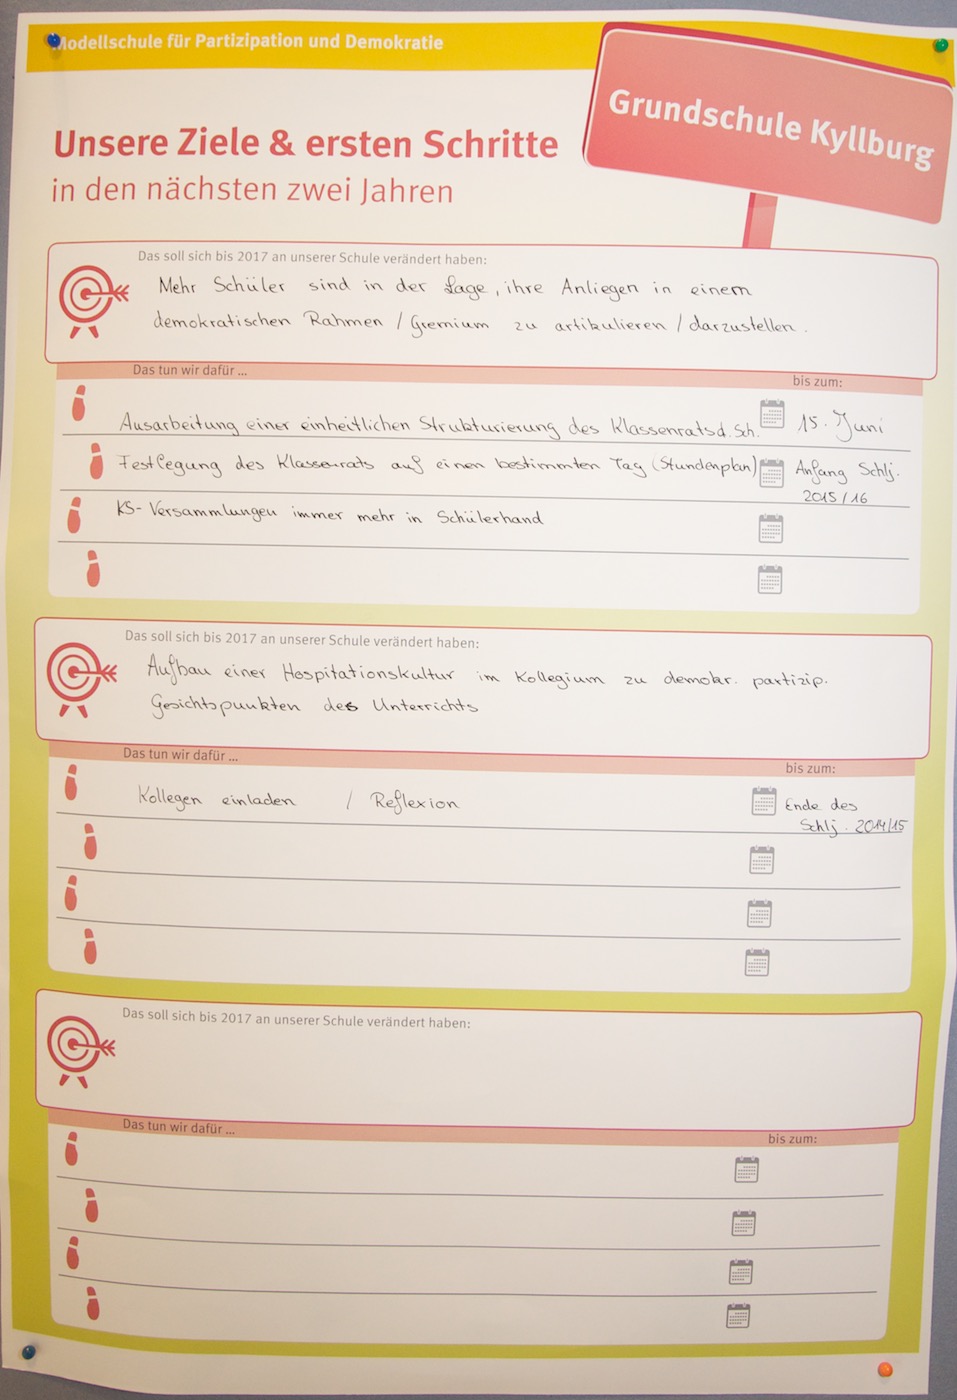 Modellschule für Partizipation und Demokratie
Grundschule Kyllburg
Unsere Ziele & ersten Schritte
in den nächsten zwei Jahren
Das soll sich bis 2017 an unserer Schule verändert haben:
Mehr Schüler sind in der Lage, ihre Anliegen in einem
demokratischen Rahmen / Gremium zu artikulieren / darzustellen.
Das tun wir dafür ...
bis zum:
Ausarbeitung einer einheitlichen Strukturierung des Klassenrats d. Sch.
15. Juni
Festlegung des Klassenrats auf einen bestimmten Tag (Stundenplan)
Anfang Schlj.
2015/16
KS-Versammlungen immer mehr in Schülerhand
Das soll sich bis 2017 an unserer Schule verändert haben:
Aufbau einer Hospitationskultur im Kollegium zu demokr. partizip.
Gesichtspunkten des Unterrichts
Das tun wir dafür ...
bis zum:
Kollegen einladen / Reflexion
Ende des
Schlj. 2014/15
Das soll sich bis 2017 an unserer Schule verändert haben:
Das tun wir dafür ...
bis zum: